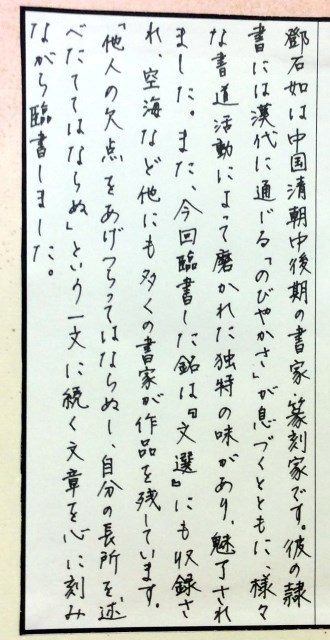 鄧石如は中国清朝中後期の書家篆刻家です。彼の隷
書には漢代に通じる「のびやかさ」が息づくとともに、様々
な書道活動によって磨かれた独特の味があり、魅了され
ました。また、今回臨書した銘は『文選』にも収録さ
れ、空海など他にも多くの書家が作品を残しています。
「他人の欠点をあげつらってはならぬし、自分の長所を述
べたててはならぬ」という一文に続く文章を心に刻み
ながら臨書しました。